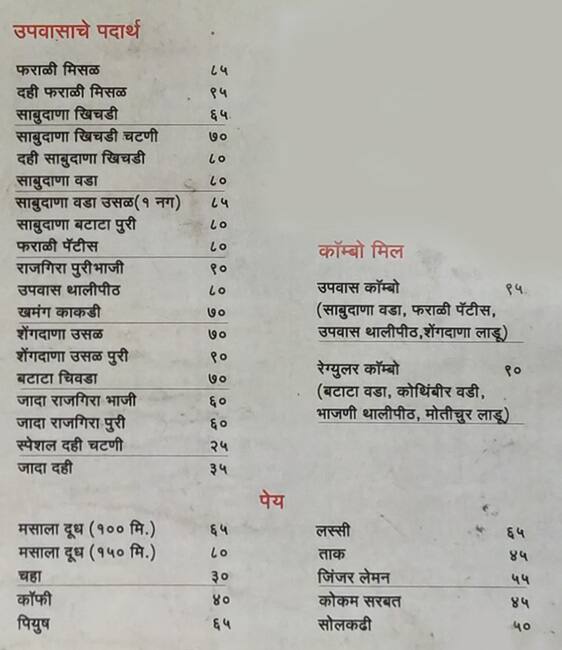 उपवासाचे पदार्थ
फराळी मिसळ ८५
दही फराळी मिसळ ९५
साबुदाणा खिचडी ६५
साबुदाणा खिचडी चटणी ७०
दही साबुदाणा खिचडी ८०
साबुदाणा वडा ८०
साबुदाणा वडा उसळ(१ नग) ८५
साबुदाणा बटाटा पुरी ८०
फराळी पॅटीस ८०
राजगिरा पुरीभाजी ९०
उपवास थालीपीठ ८०
खमंग काकडी ७०
शेंगदाणा उसळ ७०
शेंगदाणा उसळ पुरी ९०
बटाटा चिवडा ७०
जादा राजगिरा भाजी ६०
जादा राजगिरा पुरी ६०
स्पेशल दही चटणी २५
जादा दही ३५
कॉम्बो मिल
उपवास कॉम्बो ९५
(साबुदाणा वडा, फराळी पॅटीस,
उपवास थालीपीठ,शेंगदाणा लाडू)
रेग्युलर कॉम्बो ९०
(बटाटा वडा, कोथिंबीर वडी,
भाजणी थालीपीठ, मोतीचुर लाडू)
पेय
मसाला दूध (१०० मि.) ६५
मसाला दूध (१५० मि.) ८०
चहा ३०
कॉफी ४०
पियुष ६५
लस्सी ६५
ताक ४५
जिंजर लेमन ५५
कोकम सरबत ४५
सोलकढी ५०